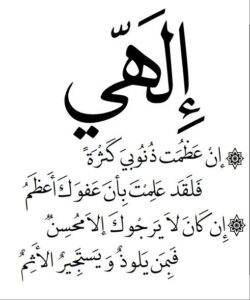 إِلَهِّي
إِنْ عَظُمَت ذُنُوبِيَ كَثْرَةً
فَلَقَد عَلِمْتَ بِأَنَ عَفوَكَ أَعظَمُ
إِن كَانَ لَا يَرجُوكَ إِلَامُحسِنٌ
فَبِمَن يَلوذُ وَ يَستَجِيرُ الأَثِمُ